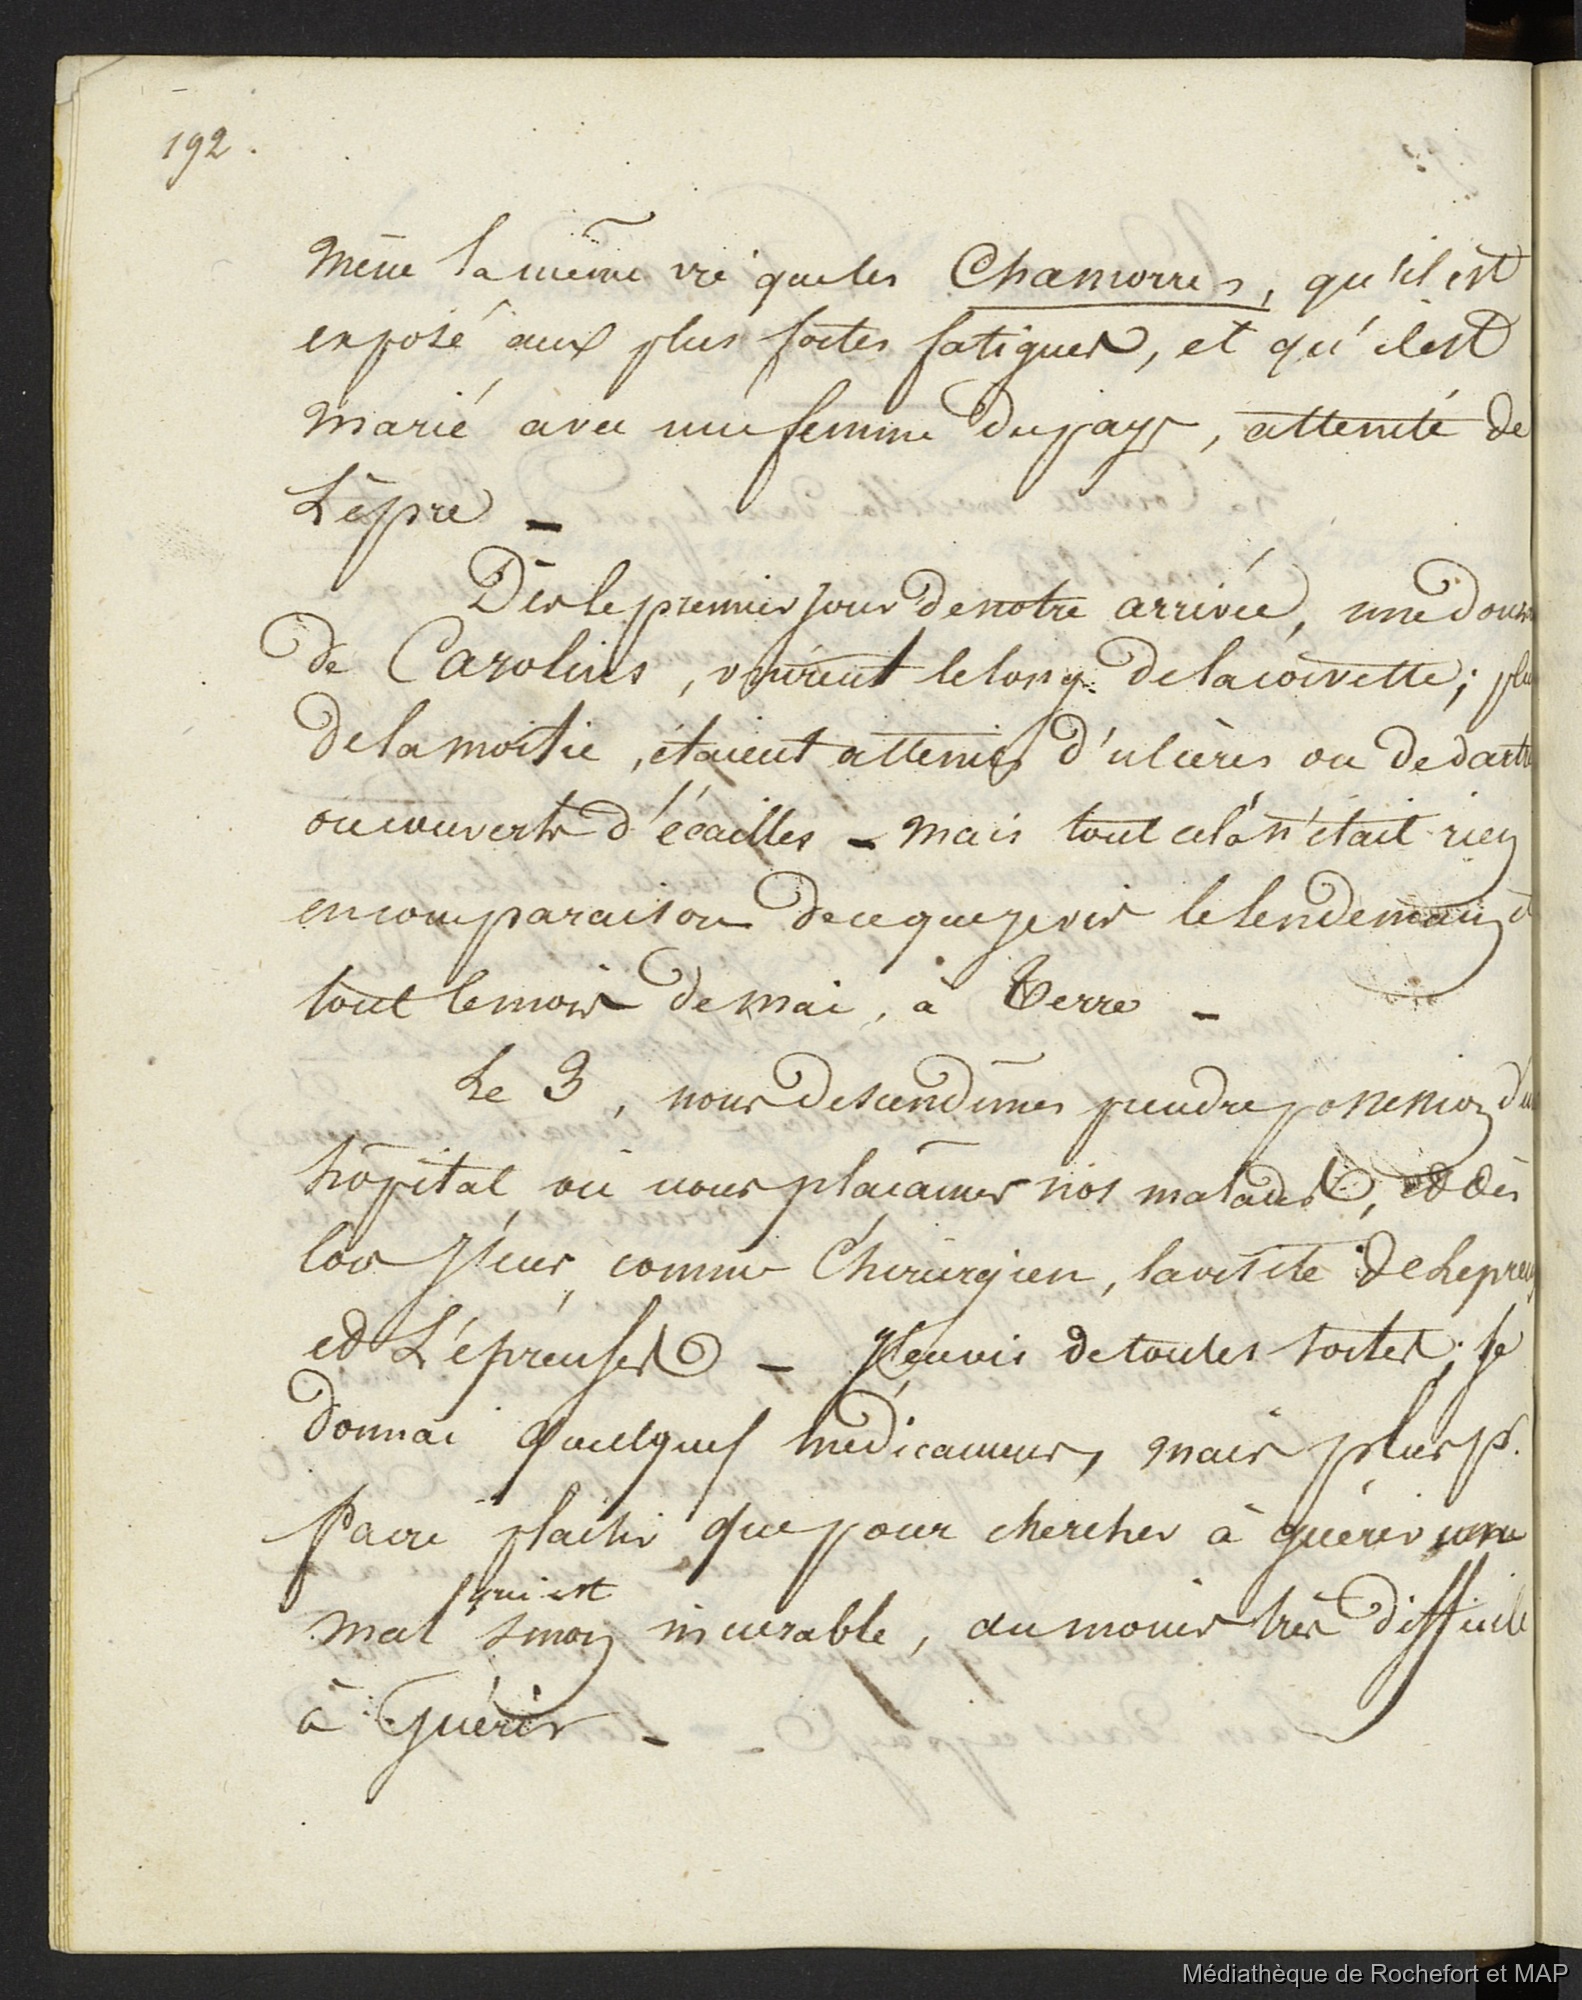 192.
mène la même vie que les Chamorres, qu'il est
exposé aux plus fortes fatigues, et qu'il est
marié avec une femme du pays, atteinte de
Lèpre –
Dès le premier jour de notre arrivée, une douz
de Carolins, vinrent le long de la corvette; plu
de la moitié, étaient atteints d'ulcères ou de dart
ou couverts d'écailles – mais tout cela n'était rien
en comparaison de ce que je vis le lendemain &
tout le mois de mai, à Terre –
Le 3, nous descendîmes prendre possession d'u
hôpital, où nous plaçâmes nos malades, et dès
lors j'eus, comme Chirurgien, la visite de Lépreu
et Lépreuses – J'en vis de toutes sortes; je
donnai quelques médicamens, mais plus pr.
faire plaisir que pour chercher à guérir un
qui est
mal sinon incurable, au moins très difficile
à Guérir –
Médiathèque de Rochefort et MAP